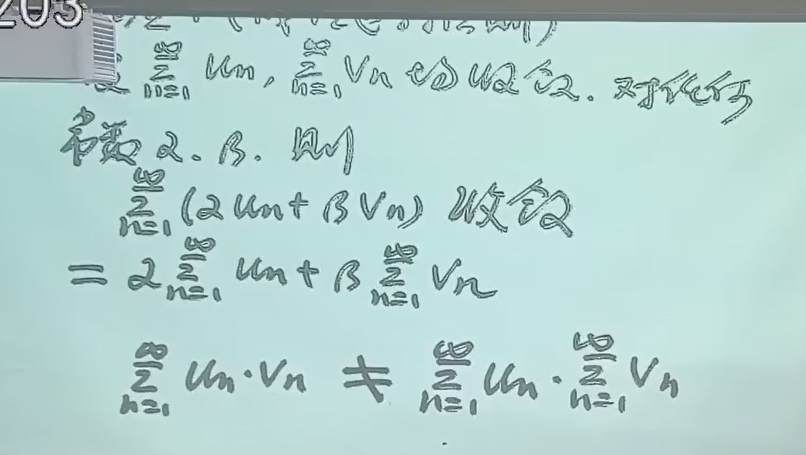 203
设 \sum_{n=1}^{\infty} u_n, \sum_{n=1}^{\infty} v_n 均收敛. 对任何
常数 α. β. 则
\sum_{n=1}^{\infty} (α u_n + β v_n) 收敛
= α \sum_{n=1}^{\infty} u_n + β \sum_{n=1}^{\infty} v_n
\sum_{n=1}^{\infty} u_n · v_n ≠ \sum_{n=1}^{\infty} u_n · \sum_{n=1}^{\infty} v_n